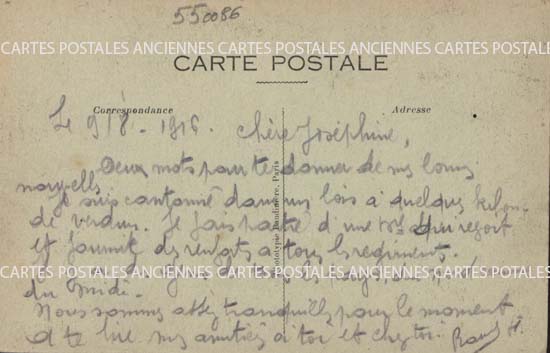 550086
CARTES POSTALES ANCIENNES CARTES POSTALES ANCIENNES CARTES POSTALES
CARTE POSTALE
Correspondance
Adresse
Le 9/8 - 1916. Chère Joséphine,
Deux mots pour te donner de mes bonnes
nouvelles
Je suis cantonné dans un bois à quelques kilom.
de verdun. Je fais partie d'une qui reçoit
et fournit des renforts a tous les regiments.
CARTES POSTALES ANCIENNES CARTES POSTALES ANCIENNES CARTES POSTALES
du Midi.
Nous sommes assez tranquilles pour le moment
a te lire mes amitiés à toi et chez toi. Raoul H.
Phototypie Baudinière, Paris